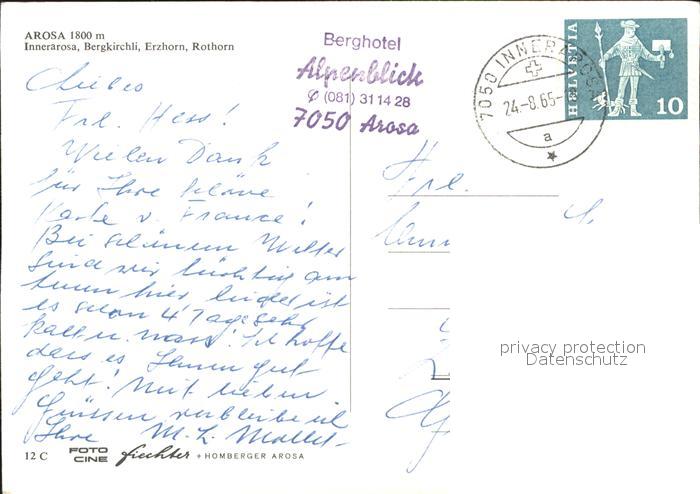 AROSA 1800 m
Innerarosa, Bergkirchli, Erzhorn, Rothorn
Berghotel
Alpenblick
✆ (081) 31 14 28
7050 Arosa
7050 INNERAROSA
24.-8.65-
a
HELVETIA
10
Liebes
Frl. Hess!
Vielen Dank
für Ihre schöne
Karte v. France!
Bei schönem Wetter
sind wir tüchtig am
hier, leider ist
es schon 4 Tage sehr
kalt u. nass! Ich hoffe
dass es Ihnen gut
geht! Mit lieben
Grüssen verbleibe ich
Ihre M. L.
Frl.
privacy protection
Datenschutz
12 C FOTO CINE fiechter + HOMBERGER AROSA